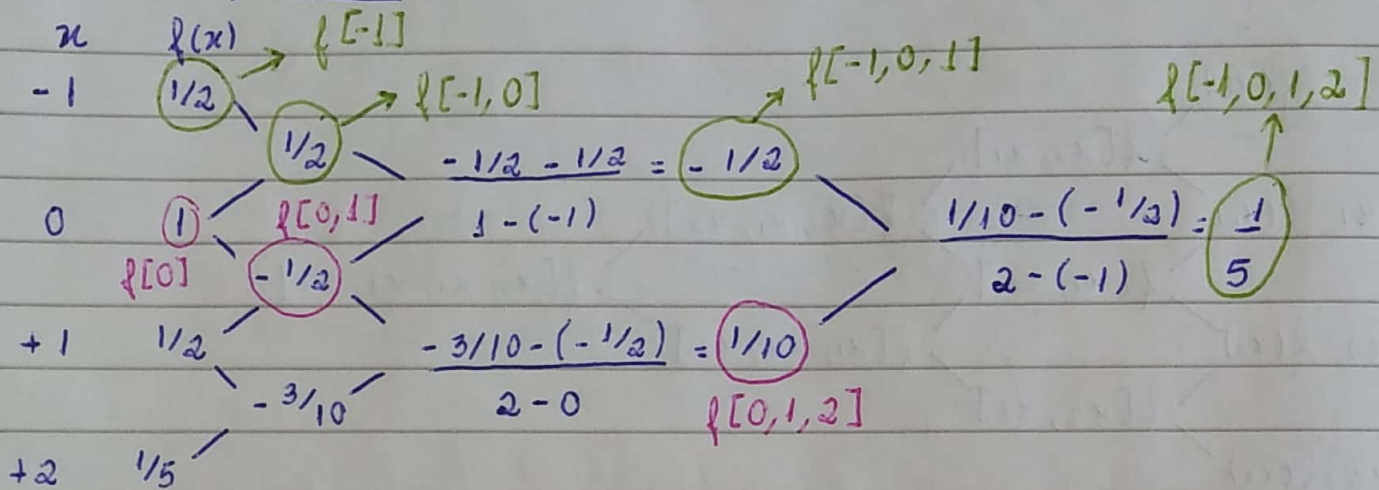 x f(x) f[-1]
-1 1/2 f[-1,0] f[-1,0,1] f[-1,0,1,2]
1/2 -1/2 - 1/2 = -1/2
1-(-1)
0 1 f[0,1] 1/10-(-1/2) = 1/5
2-(-1)
f[0] -1/2
+1 1/2 -3/10-(-1/2) = 1/10
2-0
-3/10 f[0,1,2]
+2 1/5